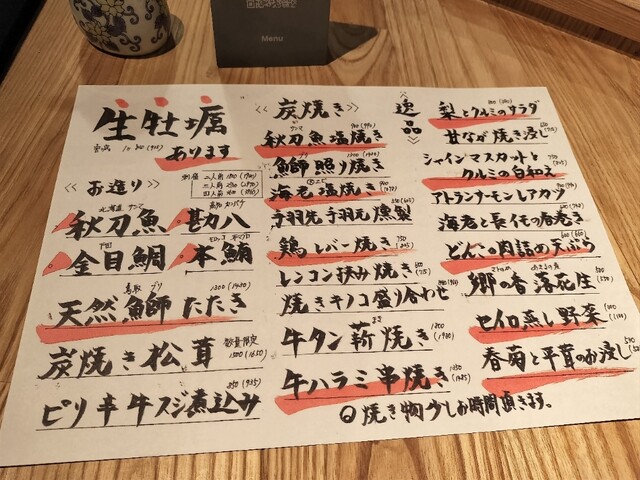 Menu
生牡蠣
あります
≪お造り≫
北海道 サンマ
秋刀魚
勘八
金目鯛
本鮪
鳥取 ブリ
天然魚師 たたき
1300(1430)
炭焼き松茸
数量限定
1500(1650)
ピリ辛牛スジ煮込み
850(935)
≪炭焼き≫
サンマ
秋刀魚塩焼き
鰤照り焼き
海老塩焼き
手羽先手羽元燻製
鶏レバー焼き
レンコン挟み焼き
焼きキノコ盛り合わせ
牛タン薪焼き
1800
(1980)
牛ハラミ串焼き
1350
(1485)
焼き物少しお時間頂きます。
逸品
梨とクルミのサラダ
甘なが焼き浸し
シャインマスカットと
クルミの白和え
アトランサーモンレアカツ
海老と長イモの春巻き
どんこ肉詰の天ぷら
郷の香落花生
セイロ蒸し野菜
春菊と平茸のお浸し